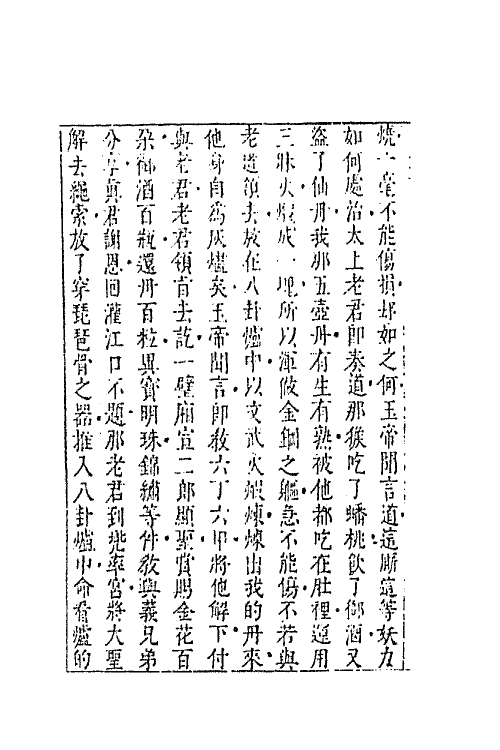 燒一毫不能傷損却如之何玉帝聞言道這厮這等妖力
如何處治太上老君卽奏道那猴吃了蟠桃飲了御酒又
盜了仙丹我那五壺丹有生有熟被他都吃在肚裡運用
三昧火煆成一塊所以渾做金鋼之軀急不能傷不若與
老道領去放在八卦爐中以文武火煆煉煉出我的丹來
他身自爲灰燼矣玉帝聞言卽敎六丁六甲將他解下付
與老君老君領旨去訖一壁廂宣二郎顯聖賞賜金花百
朶御酒百瓶還丹百粒異寶明珠錦繡等件敎與義兄弟
分享眞君謝恩回灌江口不題那老君到兠率宮將大聖
解去繩索放了穿琵琶骨之器推入八卦爐中命看爐的